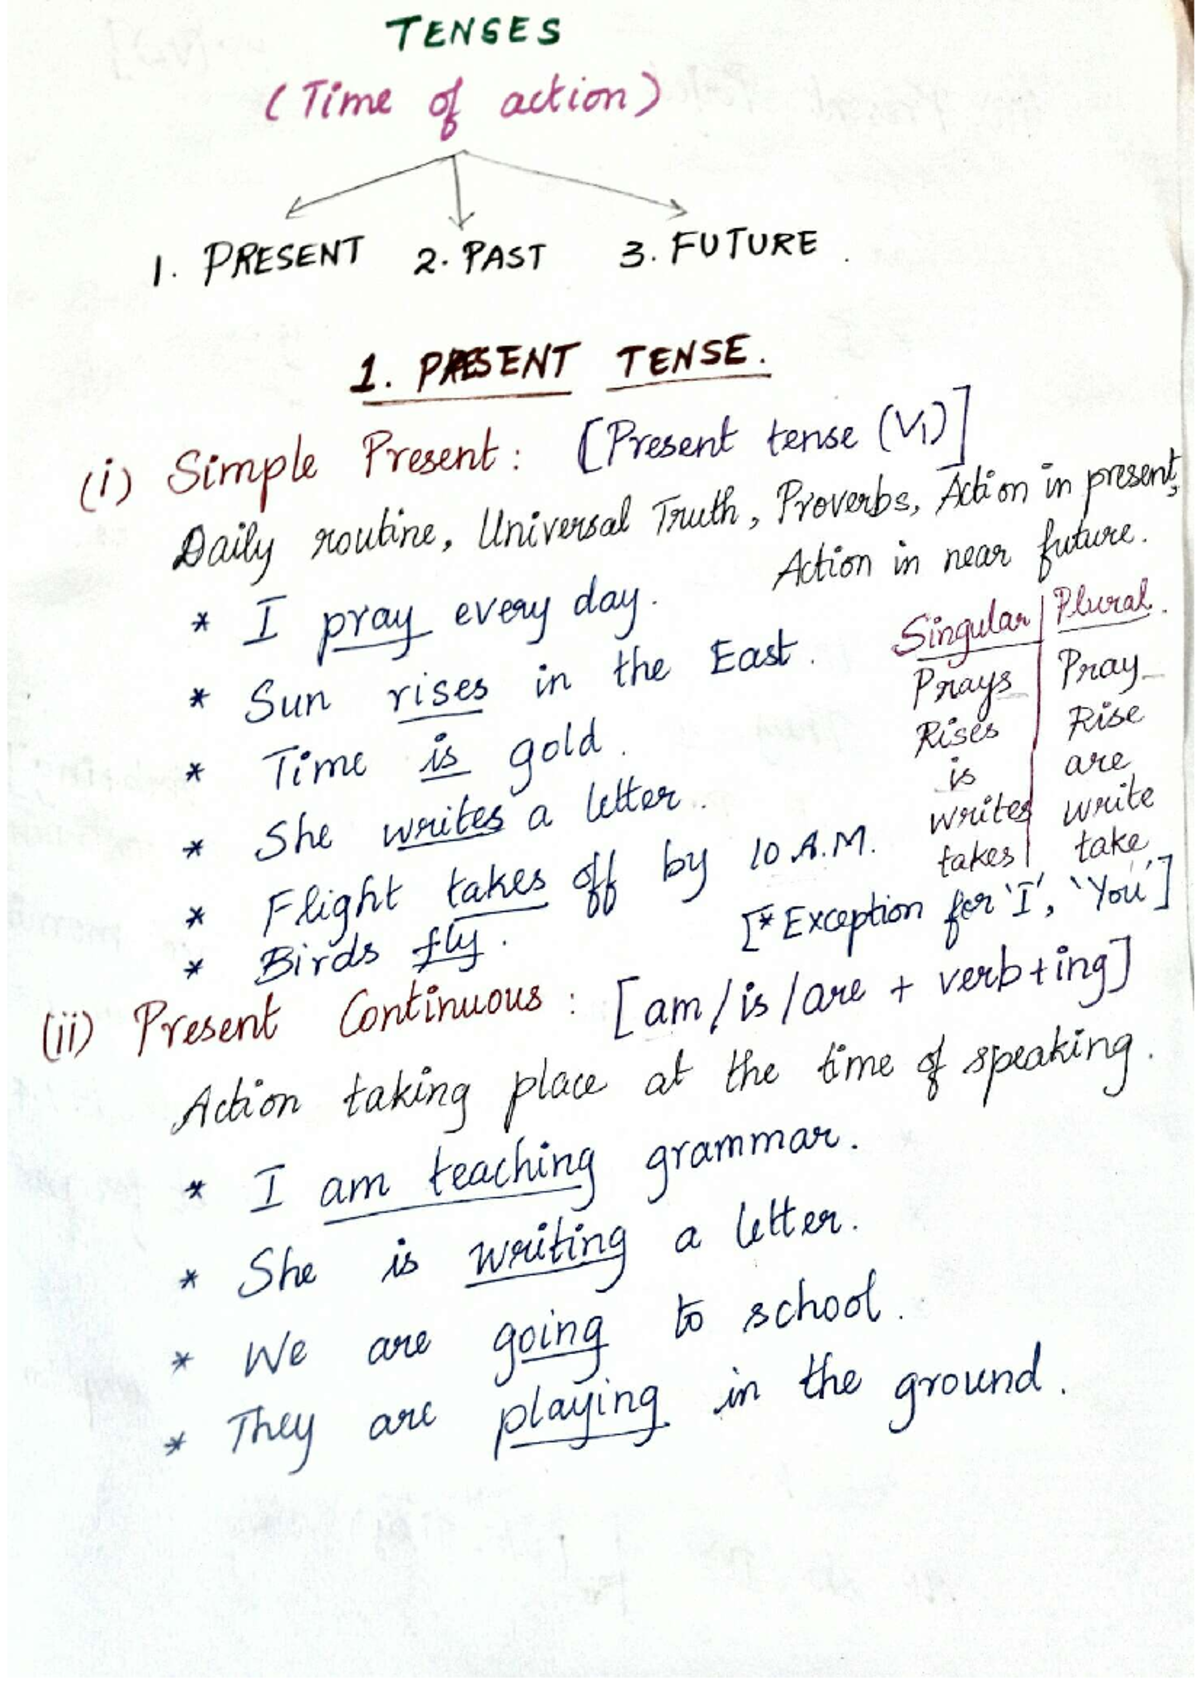 TENSES
(Time of action)
1. PRESENT 2. PAST 3. FUTURE.
1. PRESENT TENSE.
(i) Simple Present: [Present tense (V1)]
Daily routine, Universal Truth, Proverbs, Action in present,
Action in near future.
* I pray every day.
* Sun rises in the East.
* Time is gold.
* She writes a letter.
* Flight takes off by 10 A.M.
* Birds fly.
Singular | Plural.
Prays | Pray
Rises | Rise
is | are
writes | write
takes | take
[* Exception for 'I', 'You']
(ii) Present Continuous: [am/is/are + verb+ing]
Action taking place at the time of speaking.
* I am teaching grammar.
* She is writing a letter.
* We are going to school.
* They are playing in the ground.